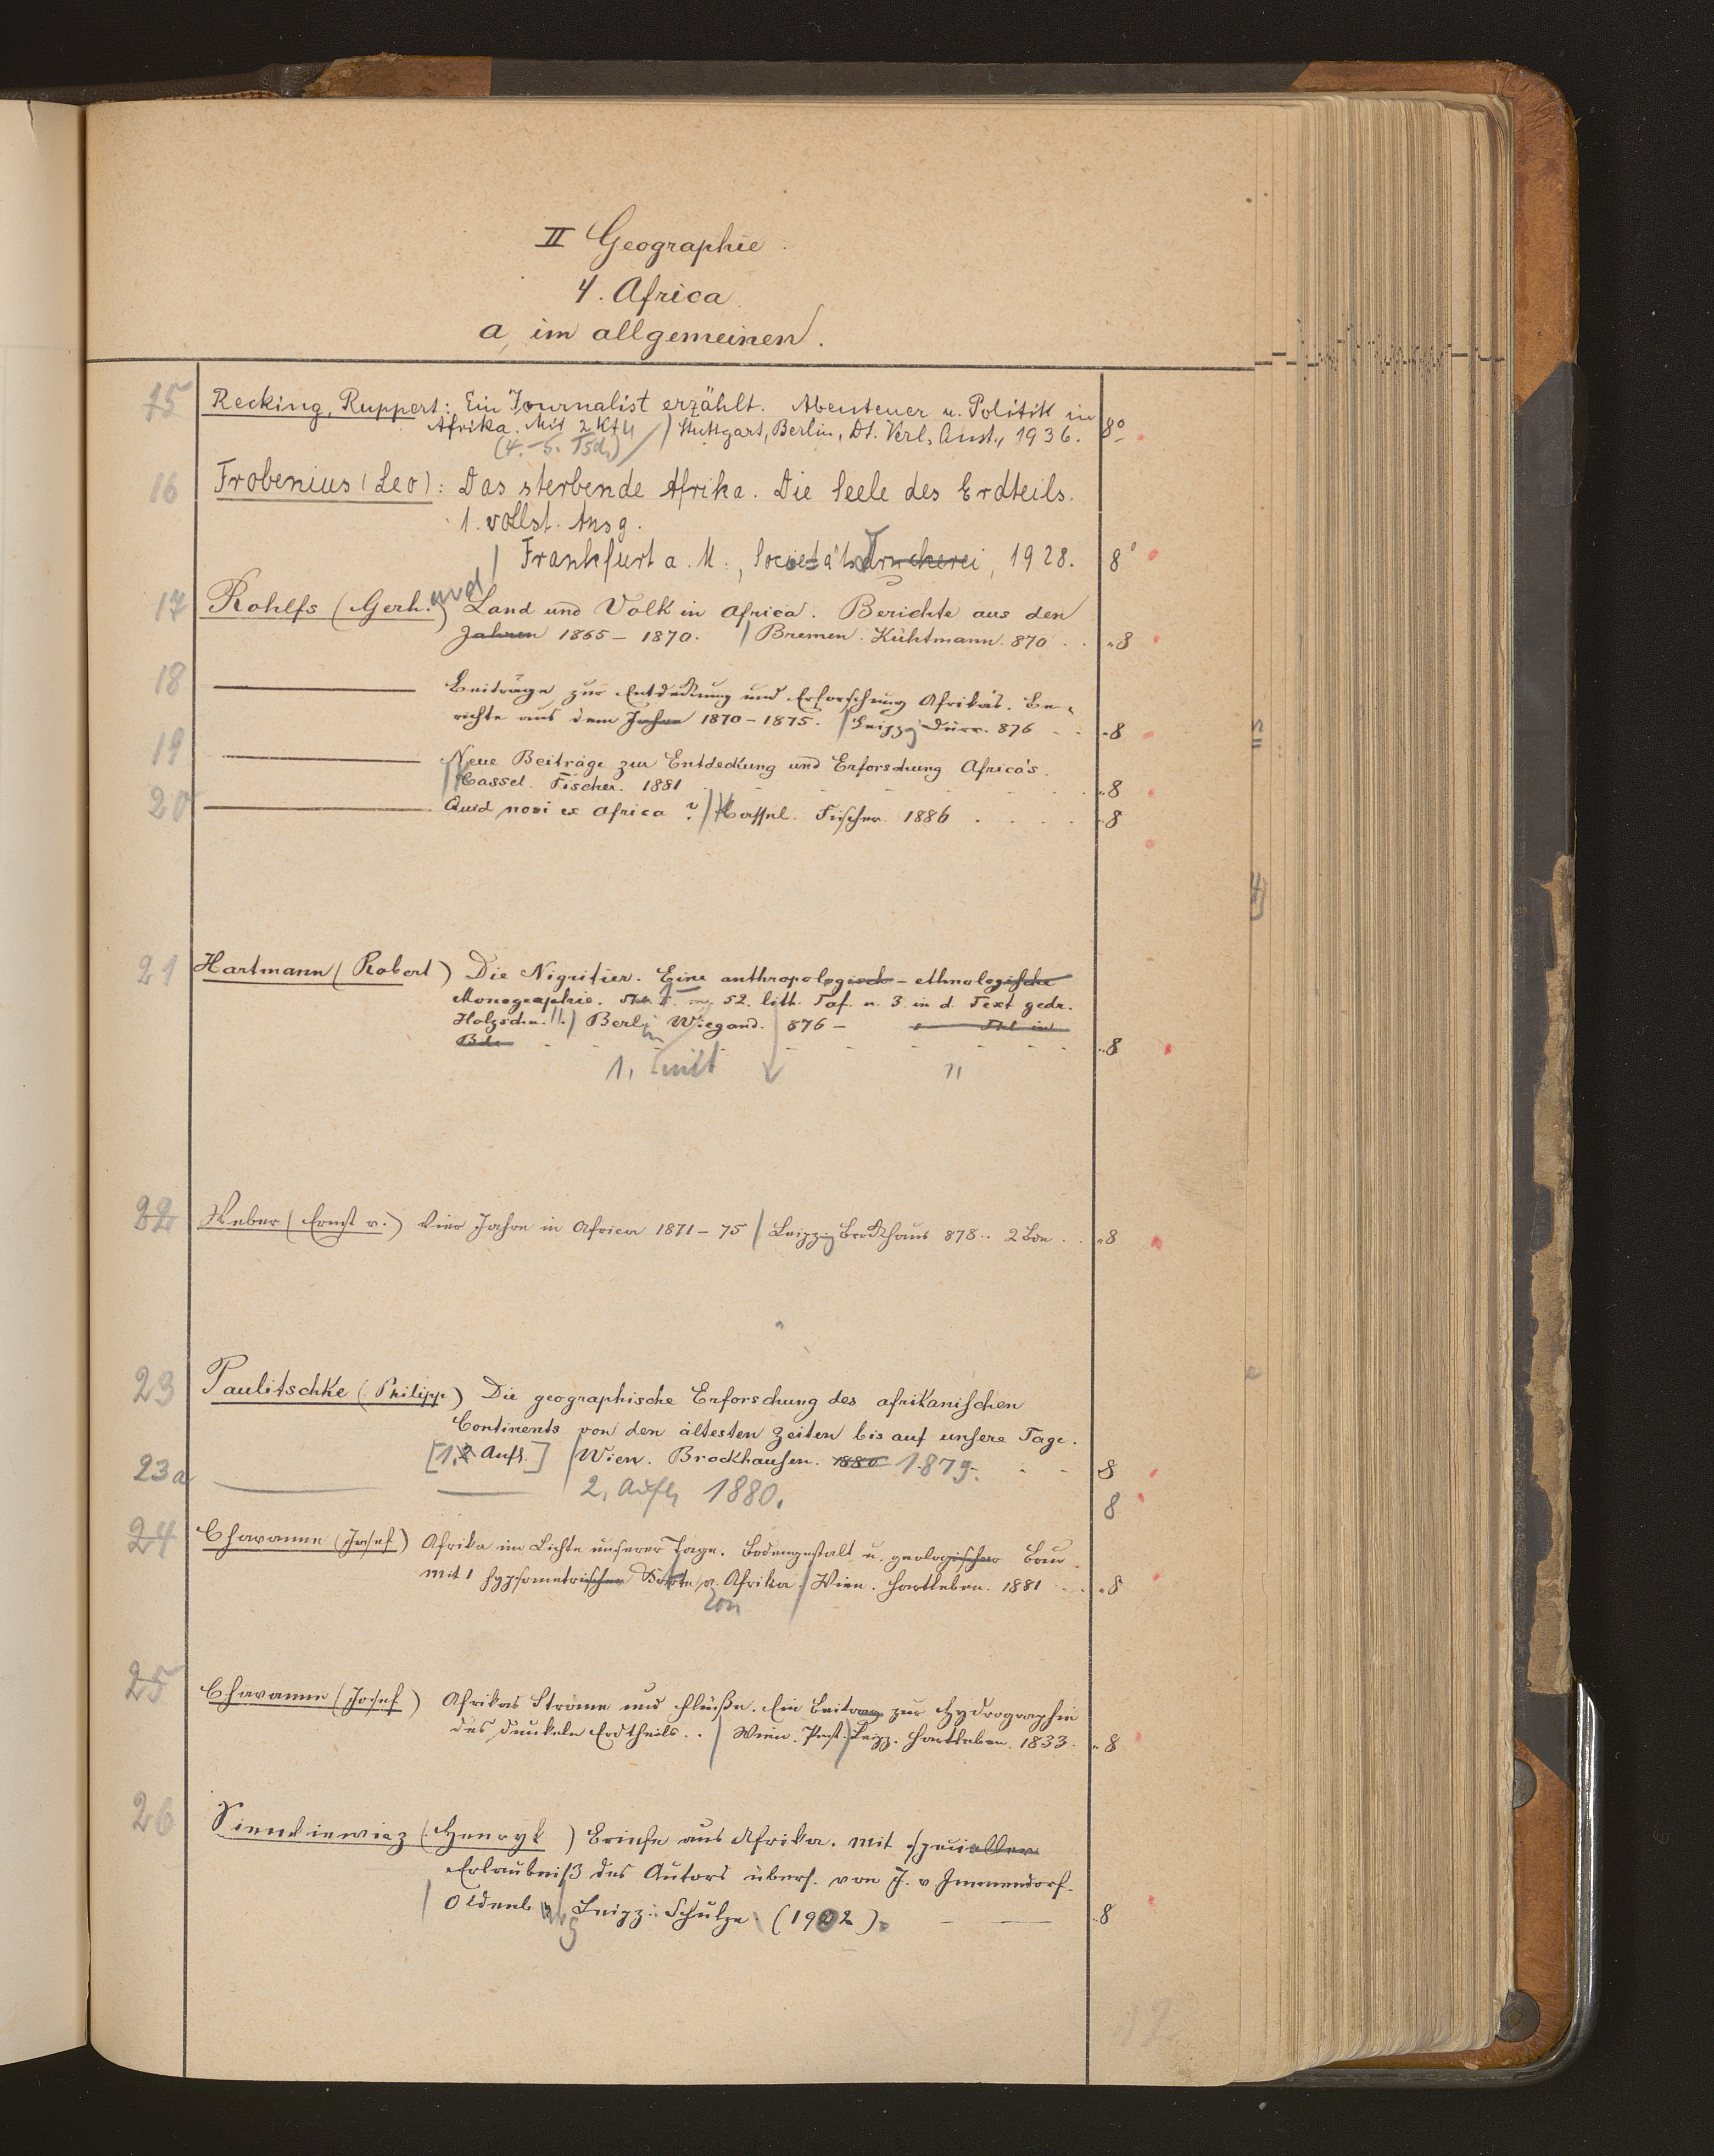 II Geographie.
4. Africa
a, im allgemeinen.
15 Recking, Ruppert: Ein Journalist erzählt. Abenteuer u. Politik in
Afrika. Mit 2 Kt. / Stuttgart, Berlin, Dt. Verl. Anst., 1936. 8º
(4.-5. Tsd.)
16 Frobenius (Leo): Das sterbende Afrika. Die Seele des Erdteils.
1. vollst. Ausg.
/ Frankfurt a. M., Societätsdruckerei, 1928. 8º
und
17 Rohlfs (Gerh.) Land und Volk in Africa. Berichte aus den
Jahren 1865-1870. / Bremen. Kühtmann. 870 . . „8
18 ——— Beiträge zur Entdeckung und Erforschung Afrika's. Be-
richte aus dem Jahre 1870-1875. / Leipzig Dürr. 876 - - „8
19 ——— Neue Beiträge zur Entdeckung und Erforschung Africa's.
/ Cassel. Fischer. 1881 „8
20 ——— Quid novi ex Africa? / Cassel. Fischer 1886 . . . . „8
21 Hartmann (Robert) Die Nigritier. Eine anthropologisch-ethnologische
Monographie. 52. lith. Taf. u. 3 in d. Text gedr.
Holzschn. / Berlin Wiegand. 876 -
Bde „8
1, mit
22 Weber (Ernst v.) Vier Jahre in Africa 1871-75 / Leipzig Brockhaus 878.. 2 Bde . . „8
23 Paulitschke (Philipp) Die geographische Erforschung des afrikanischen
Continents von den ältesten Zeiten bis auf unsere Tage.
[1. 2 Aufl.] / Wien. Brockhausen. 1880 1879. - - 8
23a ——— ——— 2. Aufl. 1880. 8
24 Chavanne (Josef) Afrika im Lichte unserer Tage. Bodengestalt u. geologischer Bau.
mit 1 hypsometrischen Karte v. Afrika. / Wien. Hartleben. 1881 . . „8
von
25 Chavanne (Josef) Afrikas Ströme und Flüße. Ein Beitrag zur Hydrographie
des dunkeln Erdtheils.. / Wien. Pest. Leipz. Hartleben. 1833. „8
26 Sienkiewicz (Henryk) Briefe aus Afrika. Mit specieller
Erlaubniß des Autors übers. von J. v Immendorf.
/ Oldenburg Leipz.: Schulze (1902). „8